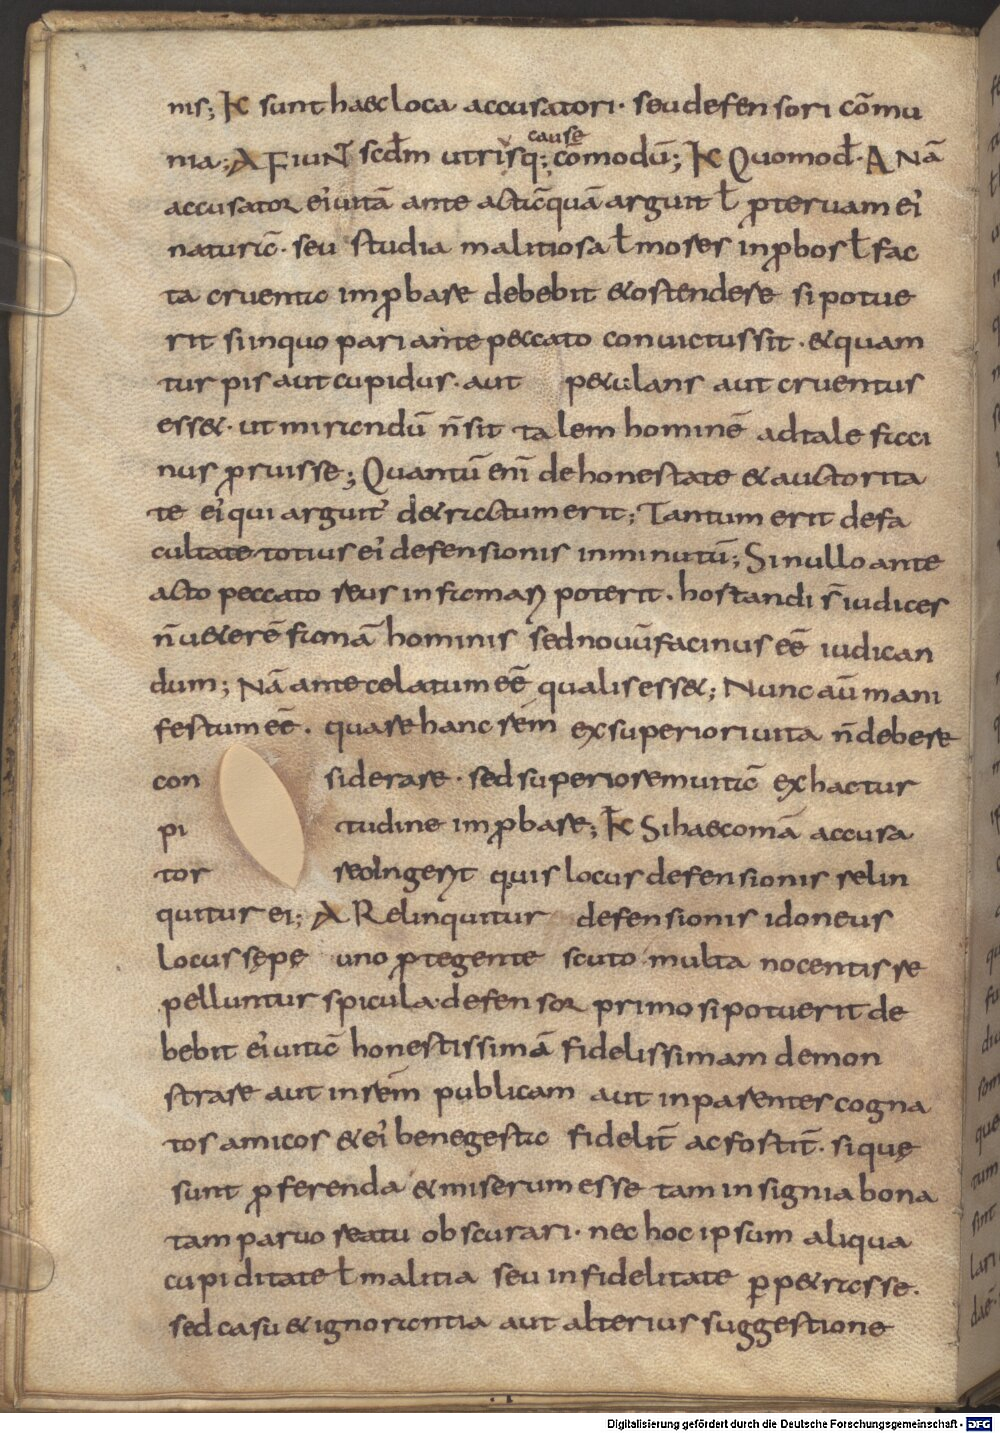 nis; K̅ sunt haec loca accusatori· seu defensori co̅mu
nia; A Fiunt scd̅m utrisq; cause co̅modu̅; K̅ Quomod̅· A Na̅
accusator ei' uita̅ ante actae̅ qua̅ arguit ł p̅teruam ei'
naturae̅· seu studia malitiosa ł mores inp̅bos ł fac
ta cruenta improbare debebit & ostendere si potue
rit si inquo pari ante peccato conuictus sit· & quam
turpis aut cupidus· aut petulans aut cruentus
esset· ut mirandu̅ n̅ sit talem homine̅ ad tale faci
nus p̅ruisse; Quantu̅ eni̅ de honestate & auctorita
te ei' qui arguit' detractum erit; Tantum erit defa
cultate totius ei' defensionis inminutu̅; Si nullo ante
acto peccato reus infamari poterit· hortandi s̅ iudices
n̅ uetere̅ fama̅ hominis sed nouu̅ facinus ee̅ iudican
dum; Na̅ ante celatum ee̅ qualis esset; Nunc au̅ mani
festum ee̅· quare hanc rem̅ ex superiori uita n̅ debere
con siderare· sed superiorem uitae̅ ex hac tur
pi tudine imp̅bare; K̅ Si haec oma̅ accusa
tor reo ingerit quis locus defensionis relin
quitur ei; A Relinquitur defensionis idoneus
locus sępę uno p̅tegente scuto multa nocentis re
pelluntur spicula· defensor primo si potuerit de
bebit ei' uitae̅ honestissima̅ fidelissimam demon
strare aut in rem̅ publicam aut in parentes cogna
tos amicos & ei' bene gesta fidelit̅ ac fortit̅· si quę
sunt p̅ferenda & miserum esse tam insignia bona
tam paruo reatu obscurari· nec hoc ipsum aliqua
cupiditate ł malitia seu infidelitate p̲petrasse·
sed casu & ignorantia aut alterius suggestione
Digitalisierung gefördert durch die Deutsche Forschungsgemeinschaft - DFG